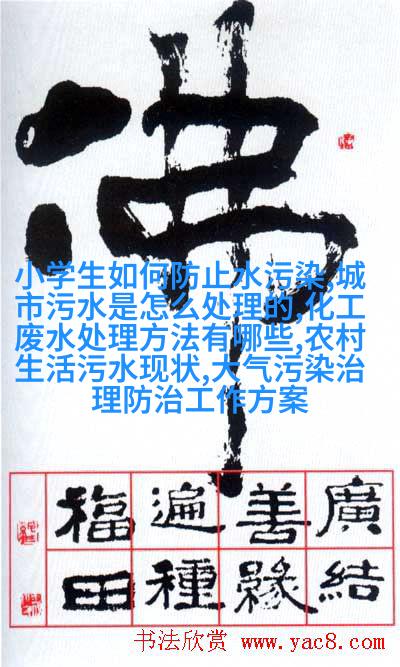 佛
小学生如何防止水污染,城
市污水是怎么处理的,化工
废水处理方法有哪些,农村
生活污水现状,大气污染治
理防治工作方案
廣結
善緣
遍種
福田
书法欣赏 www.yac8.com